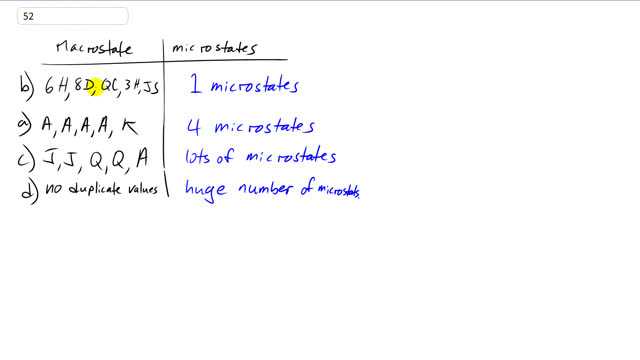 52
Macrostate microstates
b) 6H, 8D, QC, 3H, JS 1 microstates
a) A, A, A, A, K 4 microstates
c) J, J, Q, Q, A lots of microstates
d) no duplicate values huge number of microstates.